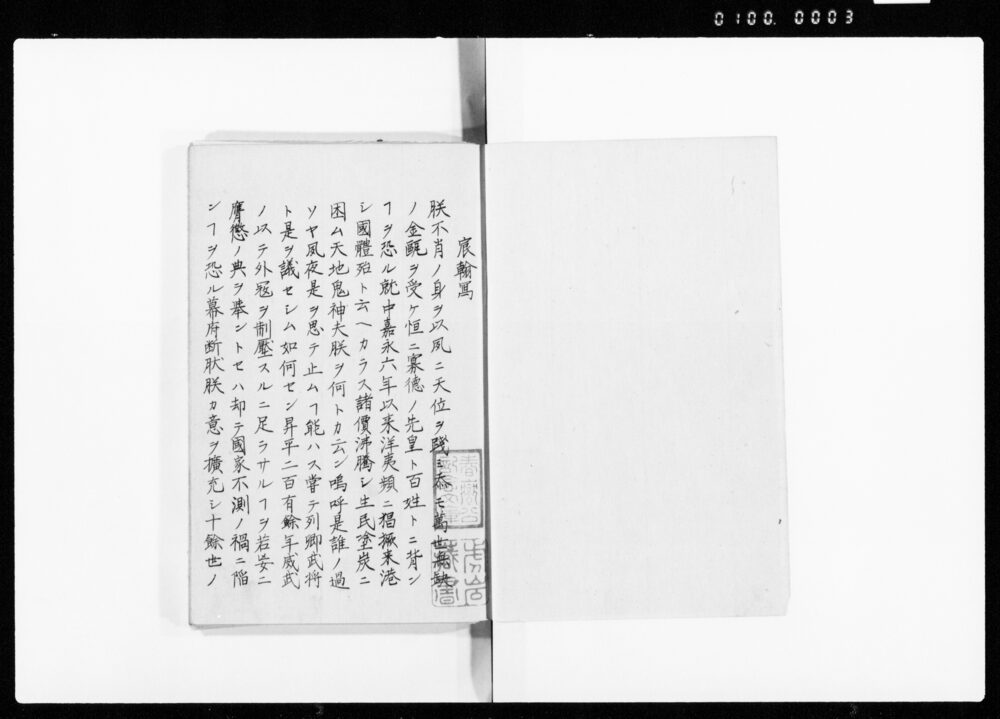 0100.0003
宸翰写
朕不肖ノ身ヲ以夙ニ天位ヲ踐ミ忝モ萬世無缺
ノ金甌ヲ受ケ恒ニ寡德ノ先皇ト百姓トニ背ン
ヿヲ恐ル就中嘉永六年以来洋夷頻ニ猖獗来港
シ國體殆ト云ヘカラス諸價沸騰シ生民塗炭ニ
困ム天地鬼神夫朕ヲ何トカ云ン嗚呼是誰ノ過
ソヤ夙夜是ヲ思テ止ムヿ能ハス嘗テ列卿武将
ト是ヲ議セシム如何セン昇平二百有餘年威武
ノ以テ外寇ヲ制壓スルニ足ラサルヿヲ若妄ニ
膺懲ノ典ヲ挙ントセハ却テ國家不測ノ禍ニ陥
ンヿヲ恐ル幕府断然朕カ意ヲ擴充シ十餘世ノ